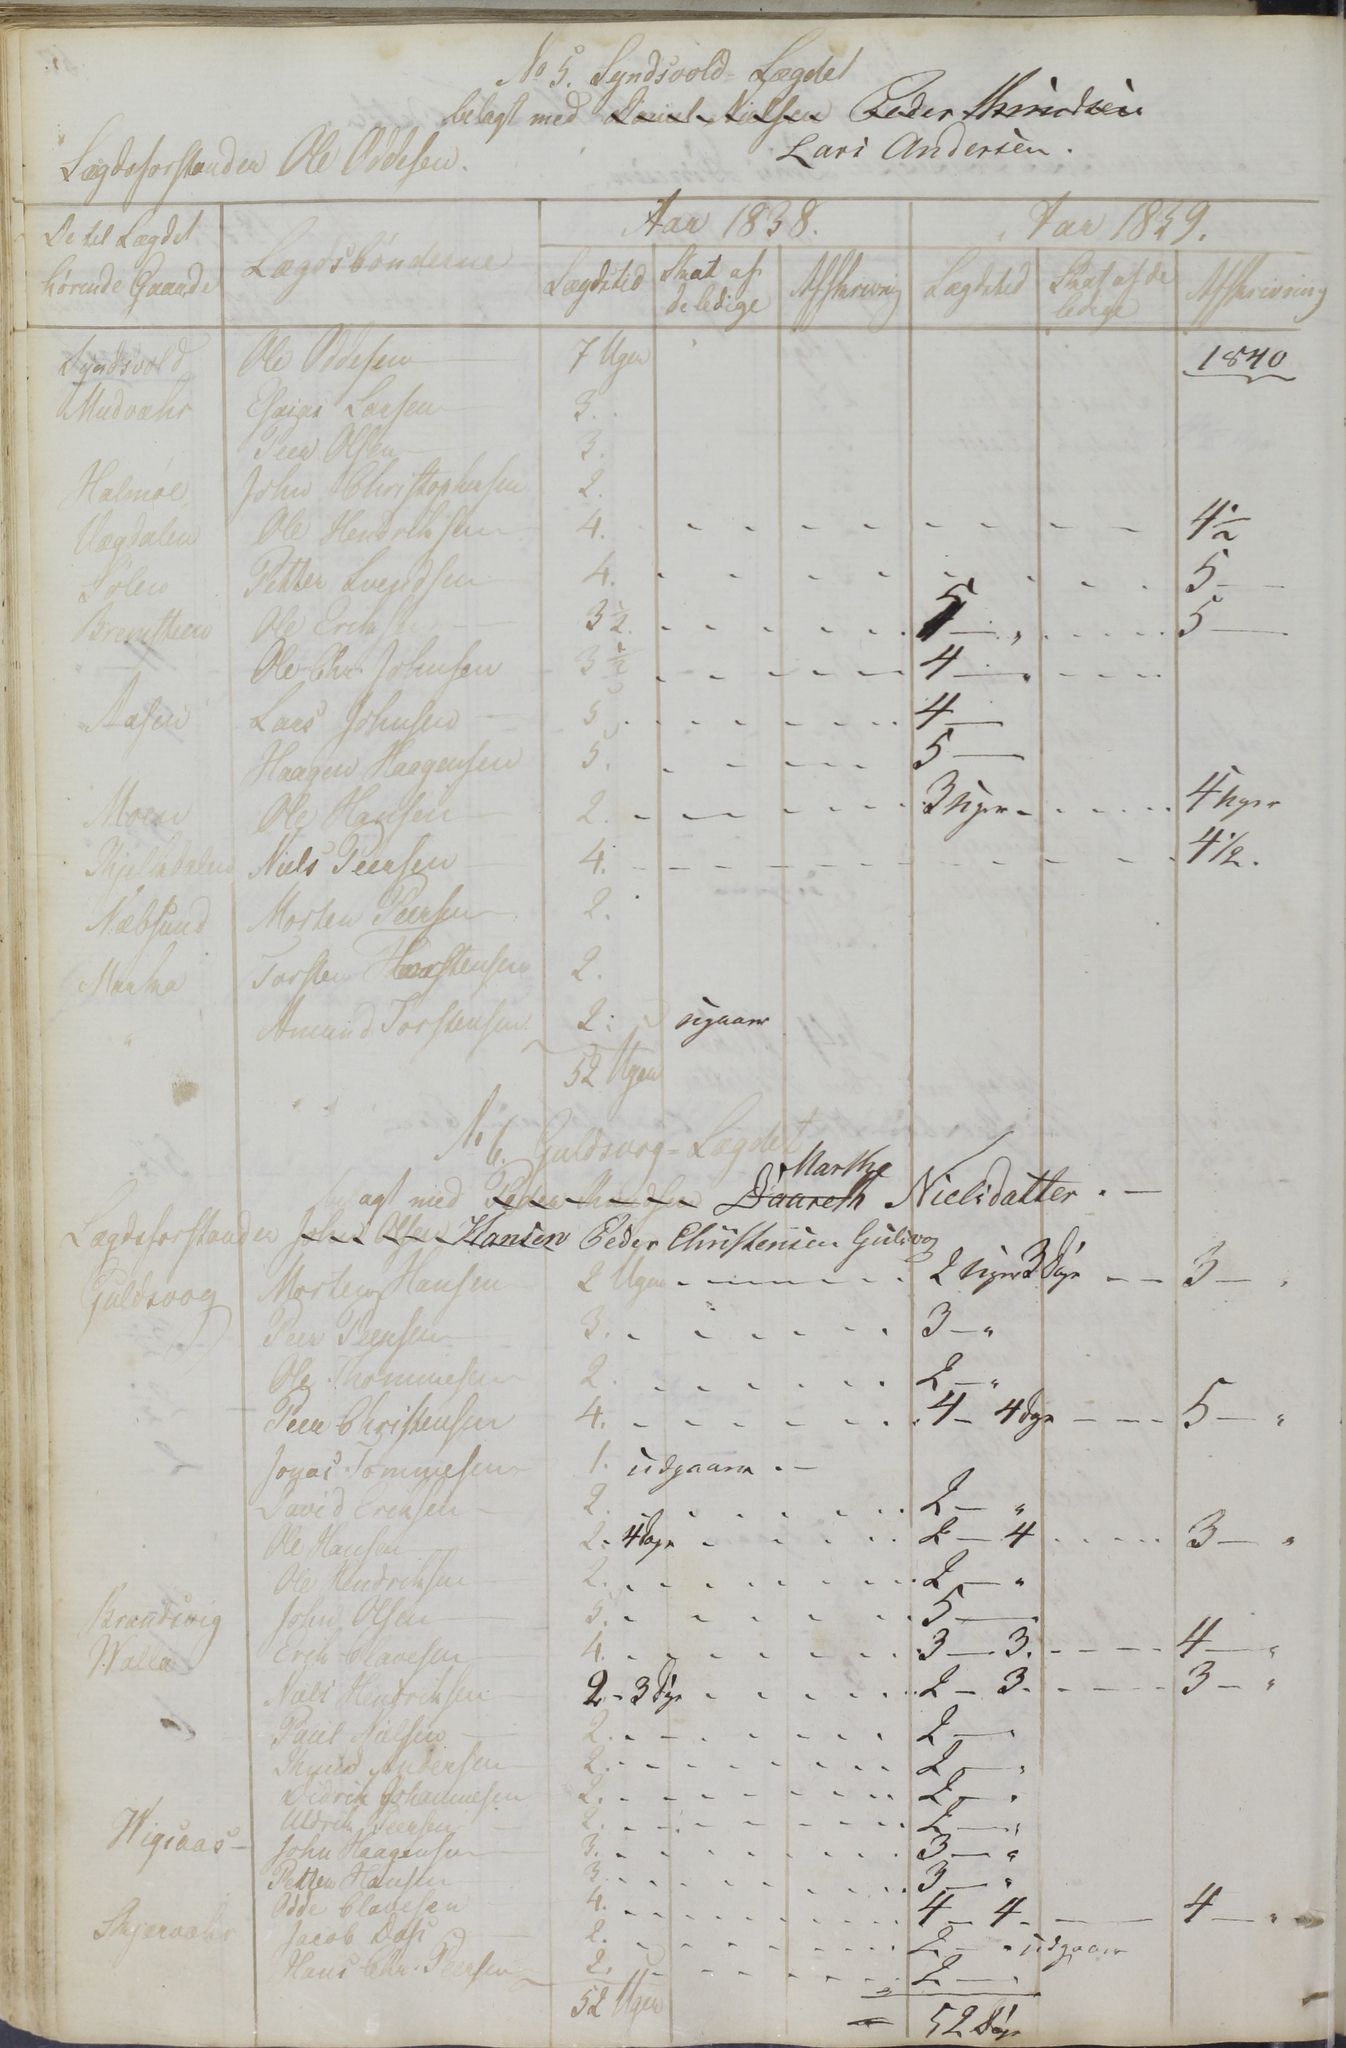 No 5. Syndsvold-Lægdet
belagt med Daniel Nielsen Peder Amundsen
Lars Andersen.
Lægdsforstander Ole Oddesen.
De til Lægdet hørende Gaarde | Lægdsbønderne | Aar 1838. | Aar 1839.
Lægdstid | Skat af de ledige | Afskrivning | Lægdstid | Skat af de ledige | Afskrivning
Syndsvold Ole Oddesen 7 Uger 1840
Mudvæhr Esaias Larsen 3.
Peer Olsen 3.
Halmøe John Christophersen 2.
Vægdalen Ole Hendriksen 4. - - - - - - - - 4 1/2
Solen Petter Svendsen 4. - - - - - - - - 5 -
Bremsteen Ole Eriksen 3 1/2. - - - - - 5 - " - - - - 5 -
Ole Chr. Johnsen 3 1/2 - - - - - 4 - " - - -
Aasen Lars Johnsen 5. - - - - - 4 -
Haagen Haagensen 5. - - - - 5 -
Moen Ole Hansen 2. - - - - - 3 Uger - - - - 4 Uger
Niels Peersen 4. - - - - - - - - 4 1/2.
Næbsund Morten Peersen 2.
Maaha Torsten Torstensen 2.
" Amund Torstensen 2. ugaaer
52 Uger
No 6. Guldsvog-Lægdet
belagt med Peder Amundsen Daareth Marthe Nielsdatter. -
Lægdsforstander John Olsen Hansen Peder Christensen Gulsvog
Guldsvog Morten Hansen 2 Uger - - - - - 2 Uger 3 Dage - - 3 - "
Peer Peersen 3. - - - - - 3 - "
Ole Thommesen 2. - - - - - 2 - "
Peer Christensen 4. - - - - - 4 - 4 Dage - - - 5 - "
Jonas Tommesen 1. udgaaer. -
David Eriksen 2. - - - - - 2 - "
Ole Hansen 2. 4 Dage - - - - 2 - 4 - - - - 3 - "
Ole Hendriksen 2. - - - - - 2 - "
Brandsvig John Olsen 5. - - - - - 5 -
Walla Erik Clavesen 4. - - - - - 3 - 3. - - - - 4 - "
Niels Hendriksen 2 - 3 Dage - - - - 2 - 3. - - - - 3 - "
Paul Nielsen 2. - - - - - 2 - "
Knud Andersen 2. - - - - - 2 - "
Didrik Johannesen 2. - - - - - 2 - "
Uldrik Peersen 2. - - - - - 2 - "
Wigsaas - John Haagensen 3. - - - - - 3 - "
Petter Hansen 3 - - - - - 3 - "
Odde Clavesen 4. - - - - - 4 - 4 - - - 4 - "
Skjærvæhr Jacob Dass 2. - - - - - 2 - " udgaaer
Hans Chr. Peersen 2. - - - - - 2 -
52 Uger - 52 Dage